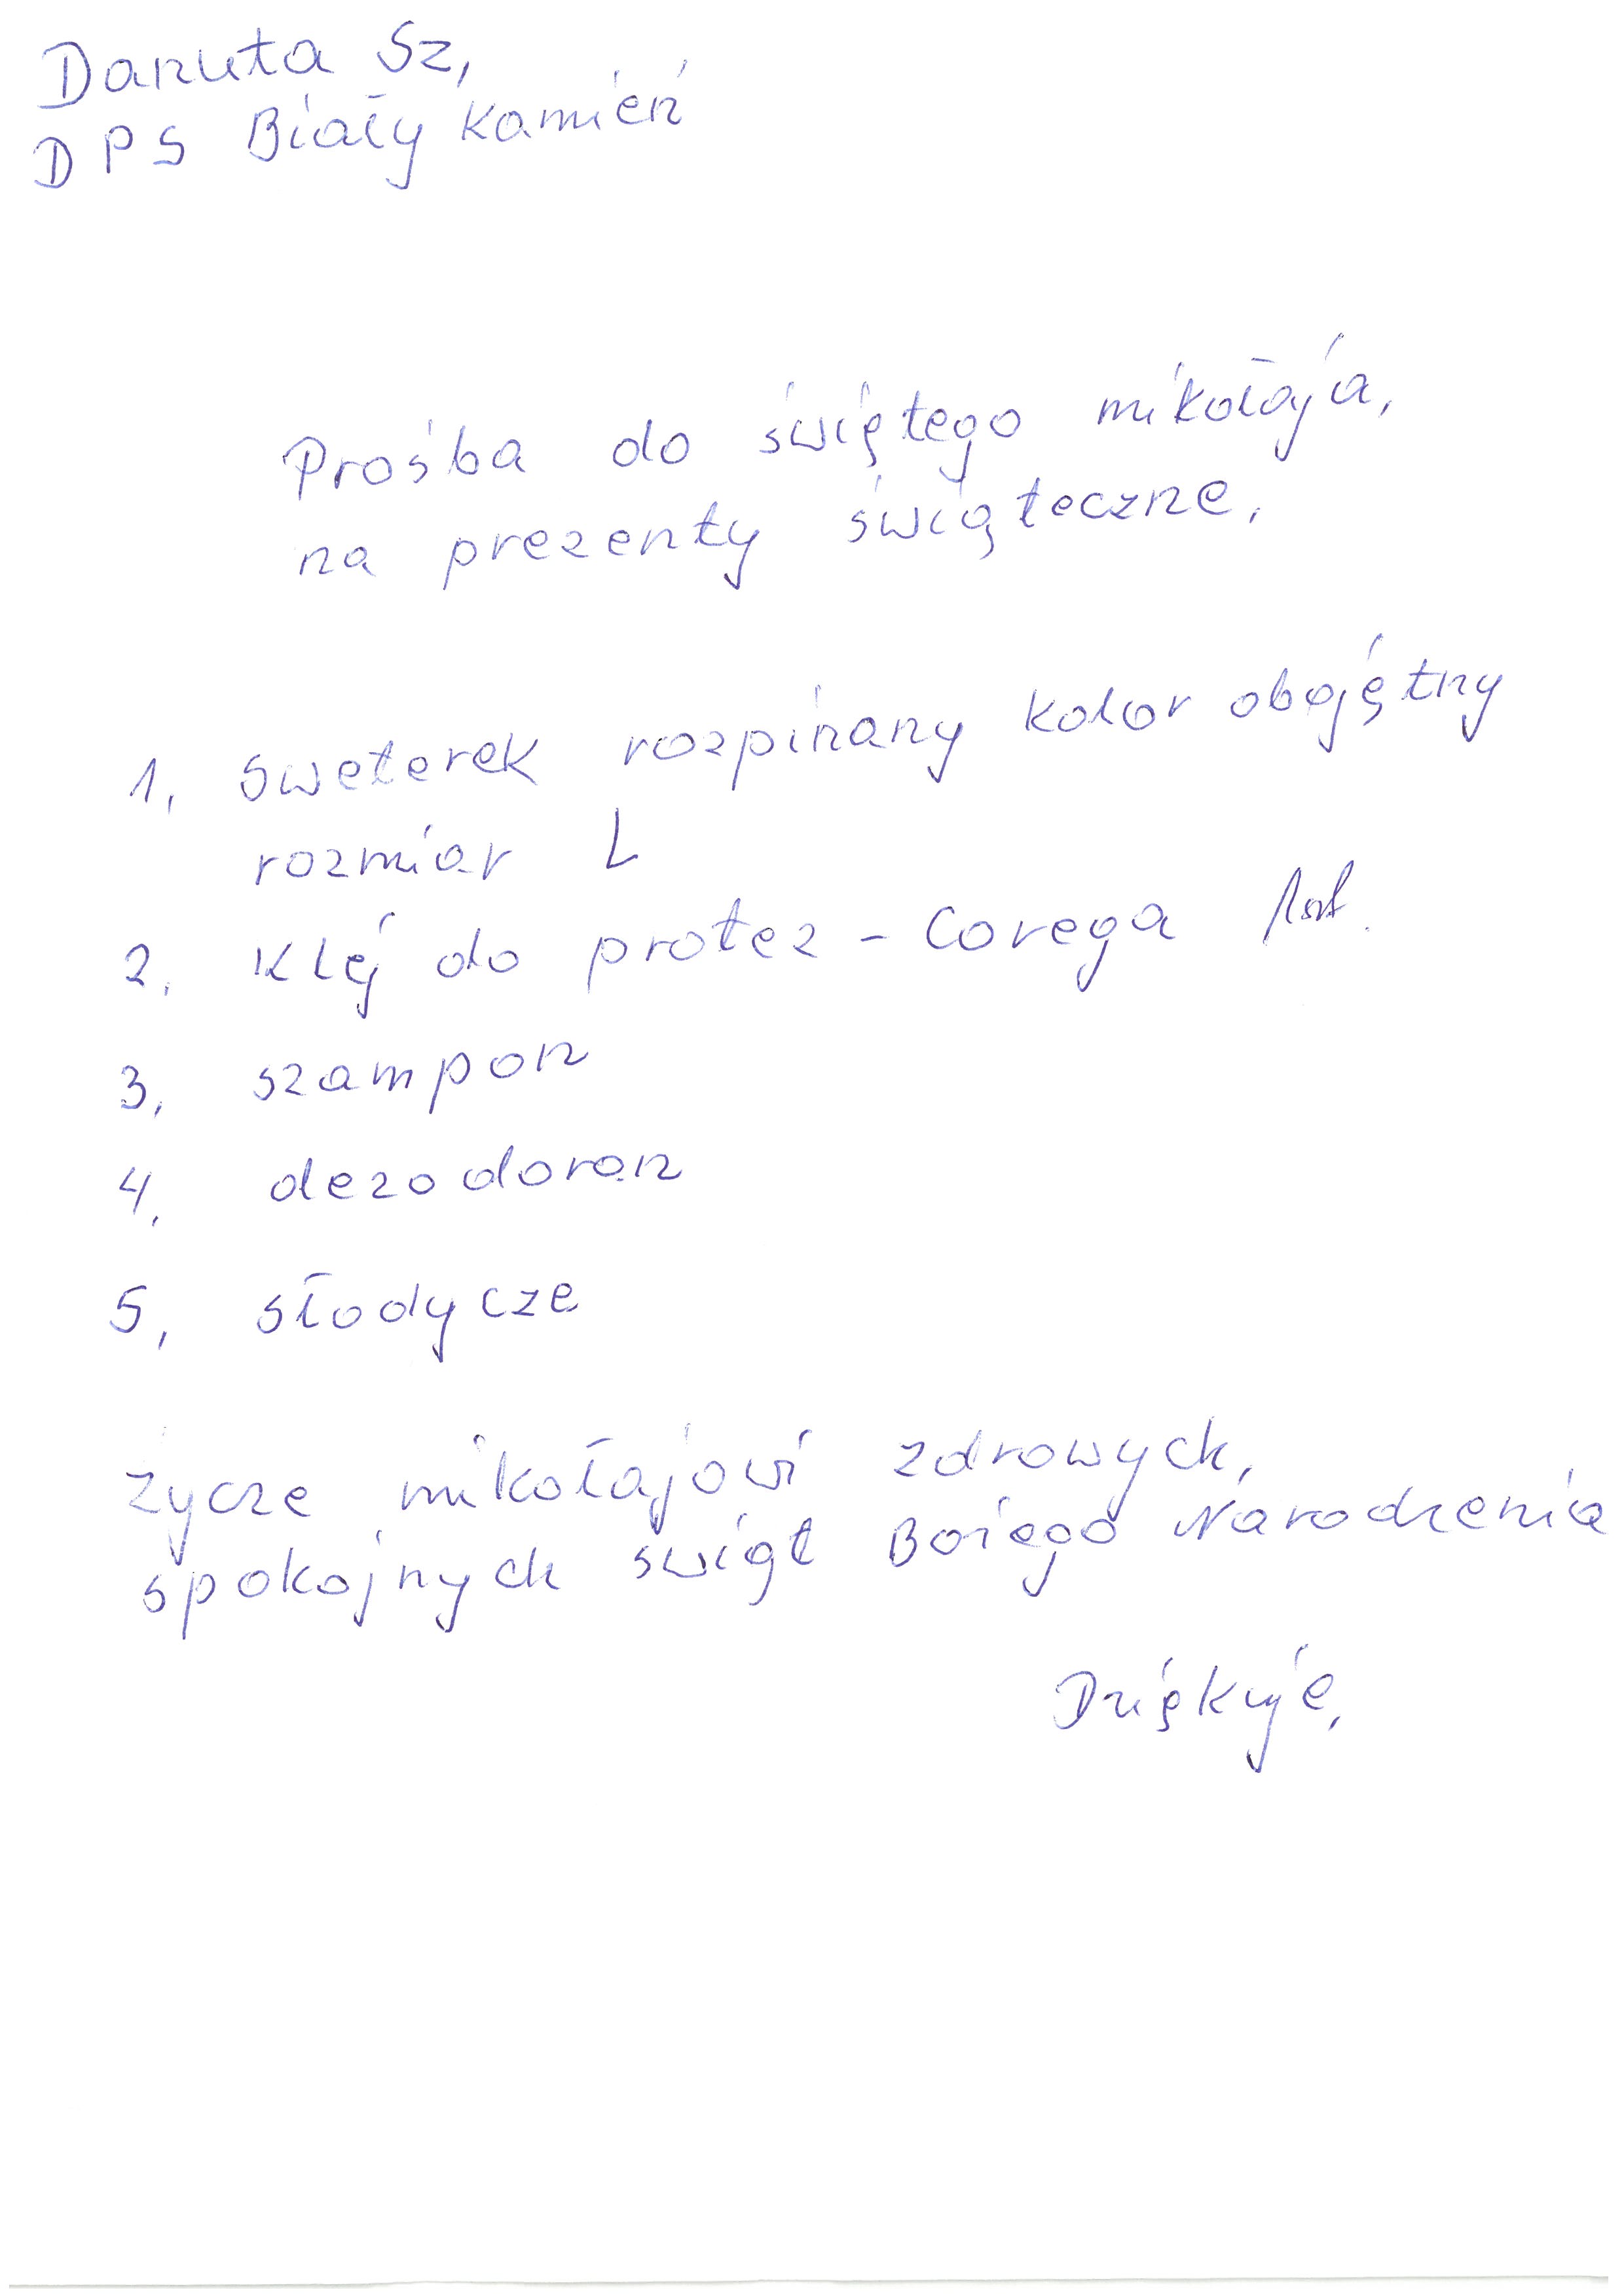 Danuta Sz,
DPS Biały Kamień
Prośba do świętego mikołaja,
na prezenty świąteczne,
1, sweterek rozpinany kolor obojętny
rozmiar L
2, Klej do protez - Corega 1szt.
3, szampon
4, dezodoran
5, słodycze
życze mikołajowi zdrowych,
spokojnych świąt Bożego Narodzenia
Dziękuje,